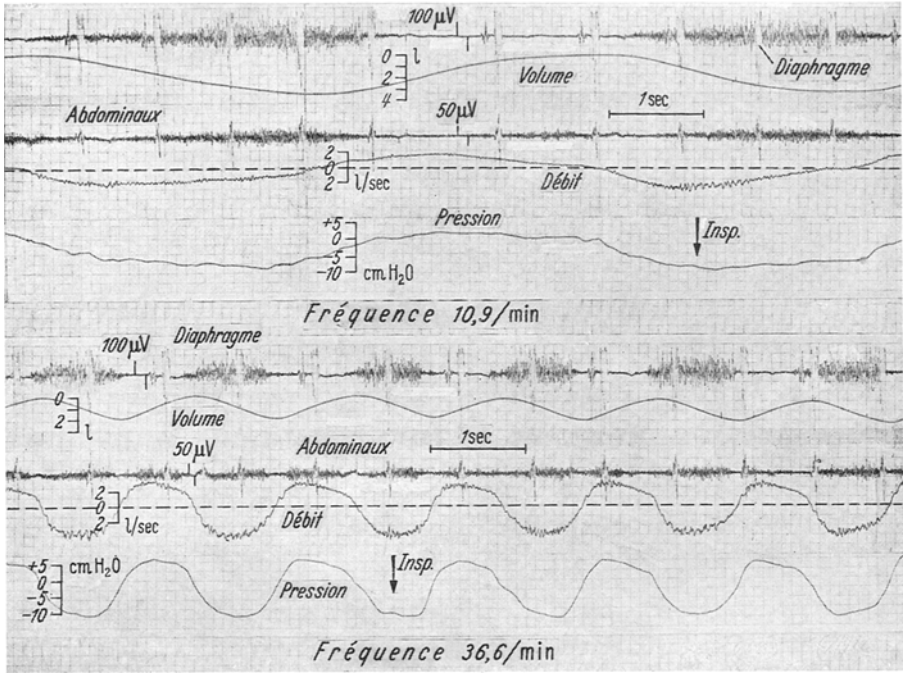 100 µV
0 l
2
4
Diaphragme
Volume
Abdominaux
50 µV
1 sec
2
0
2 l/sec
Débit
Pression
+5
0
-5
-10 cm H2O
Insp.
Fréquence 10,9/min
Diaphragme
100 µV
0
2 l
Volume
50 µV
Abdominaux
1 sec
2
0
2 l/sec
Débit
+5 cm H2O
0
-5
-10
Pression
Insp.
Fréquence 36,6/min